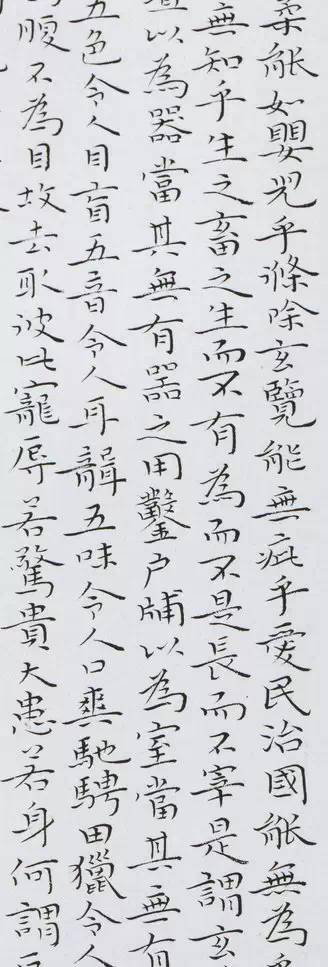 柔能如嬰兒乎滌除玄覽能無疵乎愛民治國能無為
無知乎生之畜之生而不有為而不是長而不宰是謂玄
以為器當其無有器之用鑿戶牖以為室當其無有
五色令人目盲五音令人耳聾五味令人口爽馳騁田獵令人
腹不為目故去取彼此寵辱若驚貴大患若身何謂